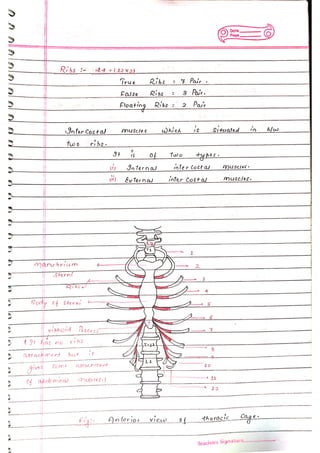 Date
Page
Ribs :- 24 = (12×2)
True Ribs : 7 Pair.
False Ribs : 3 Pair.
Floating Ribs : 2 Pair
Intercostal muscles which is situated in b/w
two ribs.
It is of two types.
i) Internal intercostal muscles.
ii) External intercostal muscles.
Manubrium
Sterni
Body of sterni
xiphoid
L1 has no ribs
attachment but it
gives some
of abdominal
1
2
3
4
5
6
7
8
9
10
11
12
L1
Fig:- Anterior view of thoracic cage.
Teachers Signature